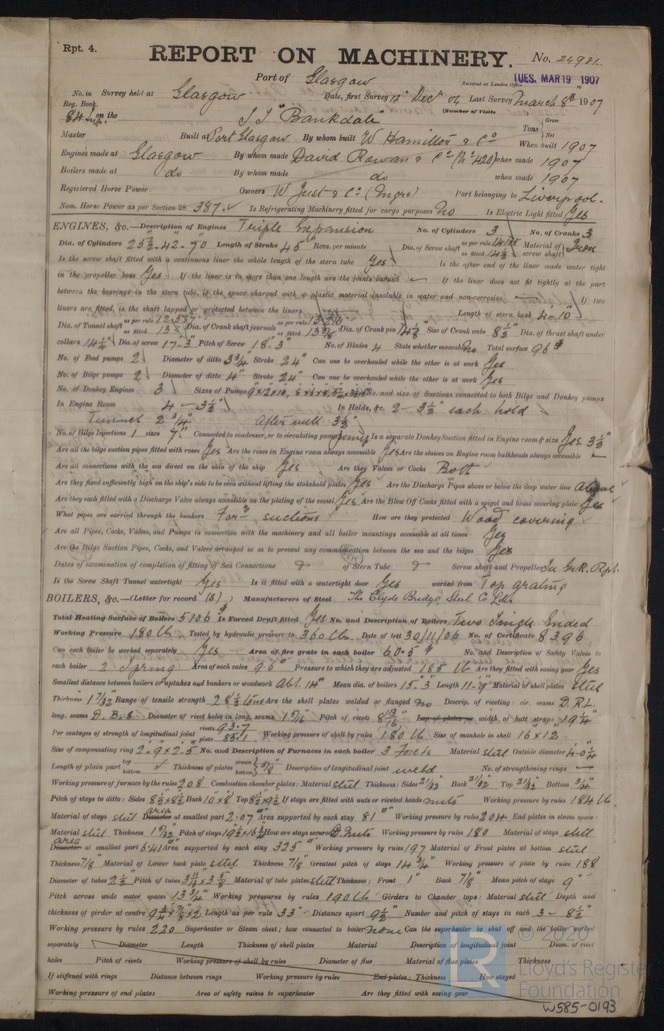 Rpt. 4.
REPORT ON MACHINERY.
No. 24981.
Port of Glasgow
Received at London Office TUES. MAR 19 1907
No. in Reg. Book. Survey held at Glasgow Date, first Survey 12th Decr 06 Last Survey March 8th 1907
841 on the S.S. "Bankdale" (Number of Visits
Master Built at Port Glasgow By whom built W Hamilton & Co Tons Gross Net When built 1907
Engines made at Glasgow By whom made David Rowan & Co (No 420) when made 1907
Boilers made at do By whom made do when made 1907
Registered Horse Power Owners W Just & Co (Mngrs) Port belonging to Liverpool.
Nom. Horse Power as per Section 28 387 Is Refrigerating Machinery fitted for cargo purposes No Is Electric Light fitted Yes
ENGINES, &c.—Description of Engines Triple Expansion No. of Cylinders 3 No. of Cranks 3
Dia. of Cylinders 25½-42-70 Length of Stroke 45" Revs. per minute Dia. of Screw shaft as per rule as fitted Material of screw shaft Iron
Is the screw shaft fitted with a continuous liner the whole length of the stern tube Yes Is the after end of the liner made water tight
in the propeller boss Yes If the liner is in more than one length are the joints burned If the liner does not fit tightly at the part
between the bearings in the stern tube, is the space charged with a plastic material insoluble in water and non-corrosive If two
liners are fitted, is the shaft lapped or protected between the liners Length of stern bush 4-10"
Dia. of Tunnel shaft as per rule as fitted Dia. of Crank shaft journals as per rule as fitted Dia. of Crank pin Size of Crank webs 8½ Dia. of thrust shaft under
collars 14¼ Dia. of screw 17-3 Pitch of Screw 18-3" No. of Blades 4 State whether moveable No Total surface 96
No. of Feed pumps 2 Diameter of ditto 3¾ Stroke 24" Can one be overhauled while the other is at work Yes
No. of Bilge pumps 2 Diameter of ditto 4" Stroke 24" Can one be overhauled while the other is at work Yes
No. of Donkey Engines 3 Sizes of Pumps No. and size of Suctions connected to both Bilge and Donkey pumps
In Engine Room 4-3½" In Holds, &c. 2-3½" each hold
Tunnel 2¾" After well 3½"
No. of Bilge Injections 1 sizes 7" Connected to condenser, or to circulating pump pump Is a separate Donkey Suction fitted in Engine room & size Yes 3½
Are all the bilge suction pipes fitted with roses Yes Are the roses in Engine room always accessible Yes Are the sluices on Engine room bulkheads always accessible
Are all connections with the sea direct on the skin of the ship Yes Are they Valves or Cocks Both
Are they fixed sufficiently high on the ship's side to be seen without lifting the stokehold plates Yes Are the Discharge Pipes above or below the deep water line above
Are they each fitted with a Discharge Valve always accessible on the plating of the vessel Yes Are the Blow Off Cocks fitted with a spigot and brass covering plate Yes
What pipes are carried through the bunkers For'd suctions How are they protected Wood covering
Are all Pipes, Cocks, Valves, and Pumps in connection with the machinery and all boiler mountings accessible at all times Yes
Are the Bilge Suction Pipes, Cocks, and Valves arranged so as to prevent any communication between the sea and the bilges Yes
Dates of examination of completion of fitting of Sea Connections of Stern Tube Screw shaft and Propeller See Gk. Rpt.
Is the Screw Shaft Tunnel watertight Yes Is it fitted with a watertight door Yes worked from Top grating
BOILERS, &c.—(Letter for record (S)) Manufacturers of Steel The Clyde Bridge Steel Co Ltd
Total Heating Surface of Boilers 5106 Is Forced Draft fitted Yes No. and Description of Boilers Two Single Ended
Working Pressure 180 lb. Tested by hydraulic pressure to 360 lbs. Date of test 30/11/06 No. of Certificate 8396
Can each boiler be worked separately Yes Area of fire grate in each boiler 60.5 No. and Description of Safety Valves to
each boiler 2 Spring Area of each valve Pressure to which they are adjusted 185 lb Are they fitted with easing gear Yes
Smallest distance between boilers or uptakes and bunkers or woodwork abt. 14" Mean dia. of boilers 15.3 Length 11-9" Material of shell plates steel
Thickness 1 7/32 Range of tensile strength Are the shell plates welded or flanged no Descrip. of riveting: cir. seams D.R.L.
long. seams D.B.S. Diameter of rivet holes in long. seams Pitch of rivets width of butt straps 19¼"
Per centages of strength of longitudinal joint rivets 93.7 plate 85.11 Working pressure of shell by rules 180 lb Size of manhole in shell 16 x 12
Size of compensating ring No. and Description of Furnaces in each boiler 3 Material steel Outside diameter
Length of plain part top bottom Thickness of plates crown bottom Description of longitudinal joint weld No. of strengthening rings
Working pressure of furnace by the rules 208 Combustion chamber plates: Material steel Thickness: Sides 21/32 Back 21/32 Top 21/32 Bottom ¾"
Pitch of stays to ditto: Sides Back 10 x 8 Top If stays are fitted with nuts or riveted heads nuts Working pressure by rules 184 lb.
Material of stays steel area at smallest part 2.07 Area supported by each stay 81 Working pressure by rules 204 End plates in steam space:
Material steel Thickness Pitch of stays How are stays secured D. nuts Working pressure by rules 180 Material of stays steel
area at smallest part Area supported by each stay 325 Working pressure by rules 197 Material of Front plates at bottom steel
Thickness 7/8 Material of Lower back plate steel Thickness 7/8 Greatest pitch of stays 14¾" Working pressure of plate by rules 188
Diameter of tubes 2½ Pitch of tubes Material of tube plates steel Thickness: Front 1" Back 7/8" Mean pitch of stays 9"
Pitch across wide water spaces 13¾" Working pressures by rules 190 lb Girders to Chamber tops: Material steel Depth and
thickness of girder at centre Length as per rule 33" Distance apart 9½ Number and pitch of stays in each 3-8½"
Working pressure by rules 220 Superheater or Steam chest; how connected to boiler none Can the superheater be shut off and the boiler worked
separately Diameter Length Thickness of shell plates Material Description of longitudinal joint Diam. of rivet
holes Pitch of rivets Working pressure of shell by rules Diameter of flue Material of flue plates Thickness
If stiffened with rings Distance between rings Working pressure by rules End plates: Thickness How stayed
Working pressure of end plates Area of safety valves to superheater Are they fitted with easing gear
© 2020
LR
Lloyd's Register
Foundation
W585-0193